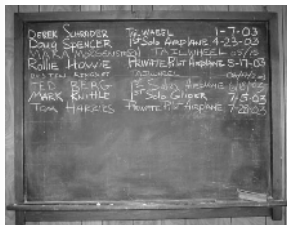 DEREK SCHRADER TAILWHEEL 1-7-03
DOUG SPENCER 1st Solo AIRPLANE 4-23-03
TAILWHEEL
Rollie Howie PRIVATE PILOT AIRPLANE 5-17-03
TAILWHEEL
TED BERG 1st Solo AIRPLANE
MARK 1st Solo GLIDER 7-5-03
TOM HARRIES PRIVATE Pilot AIRPLANE 7-28-03